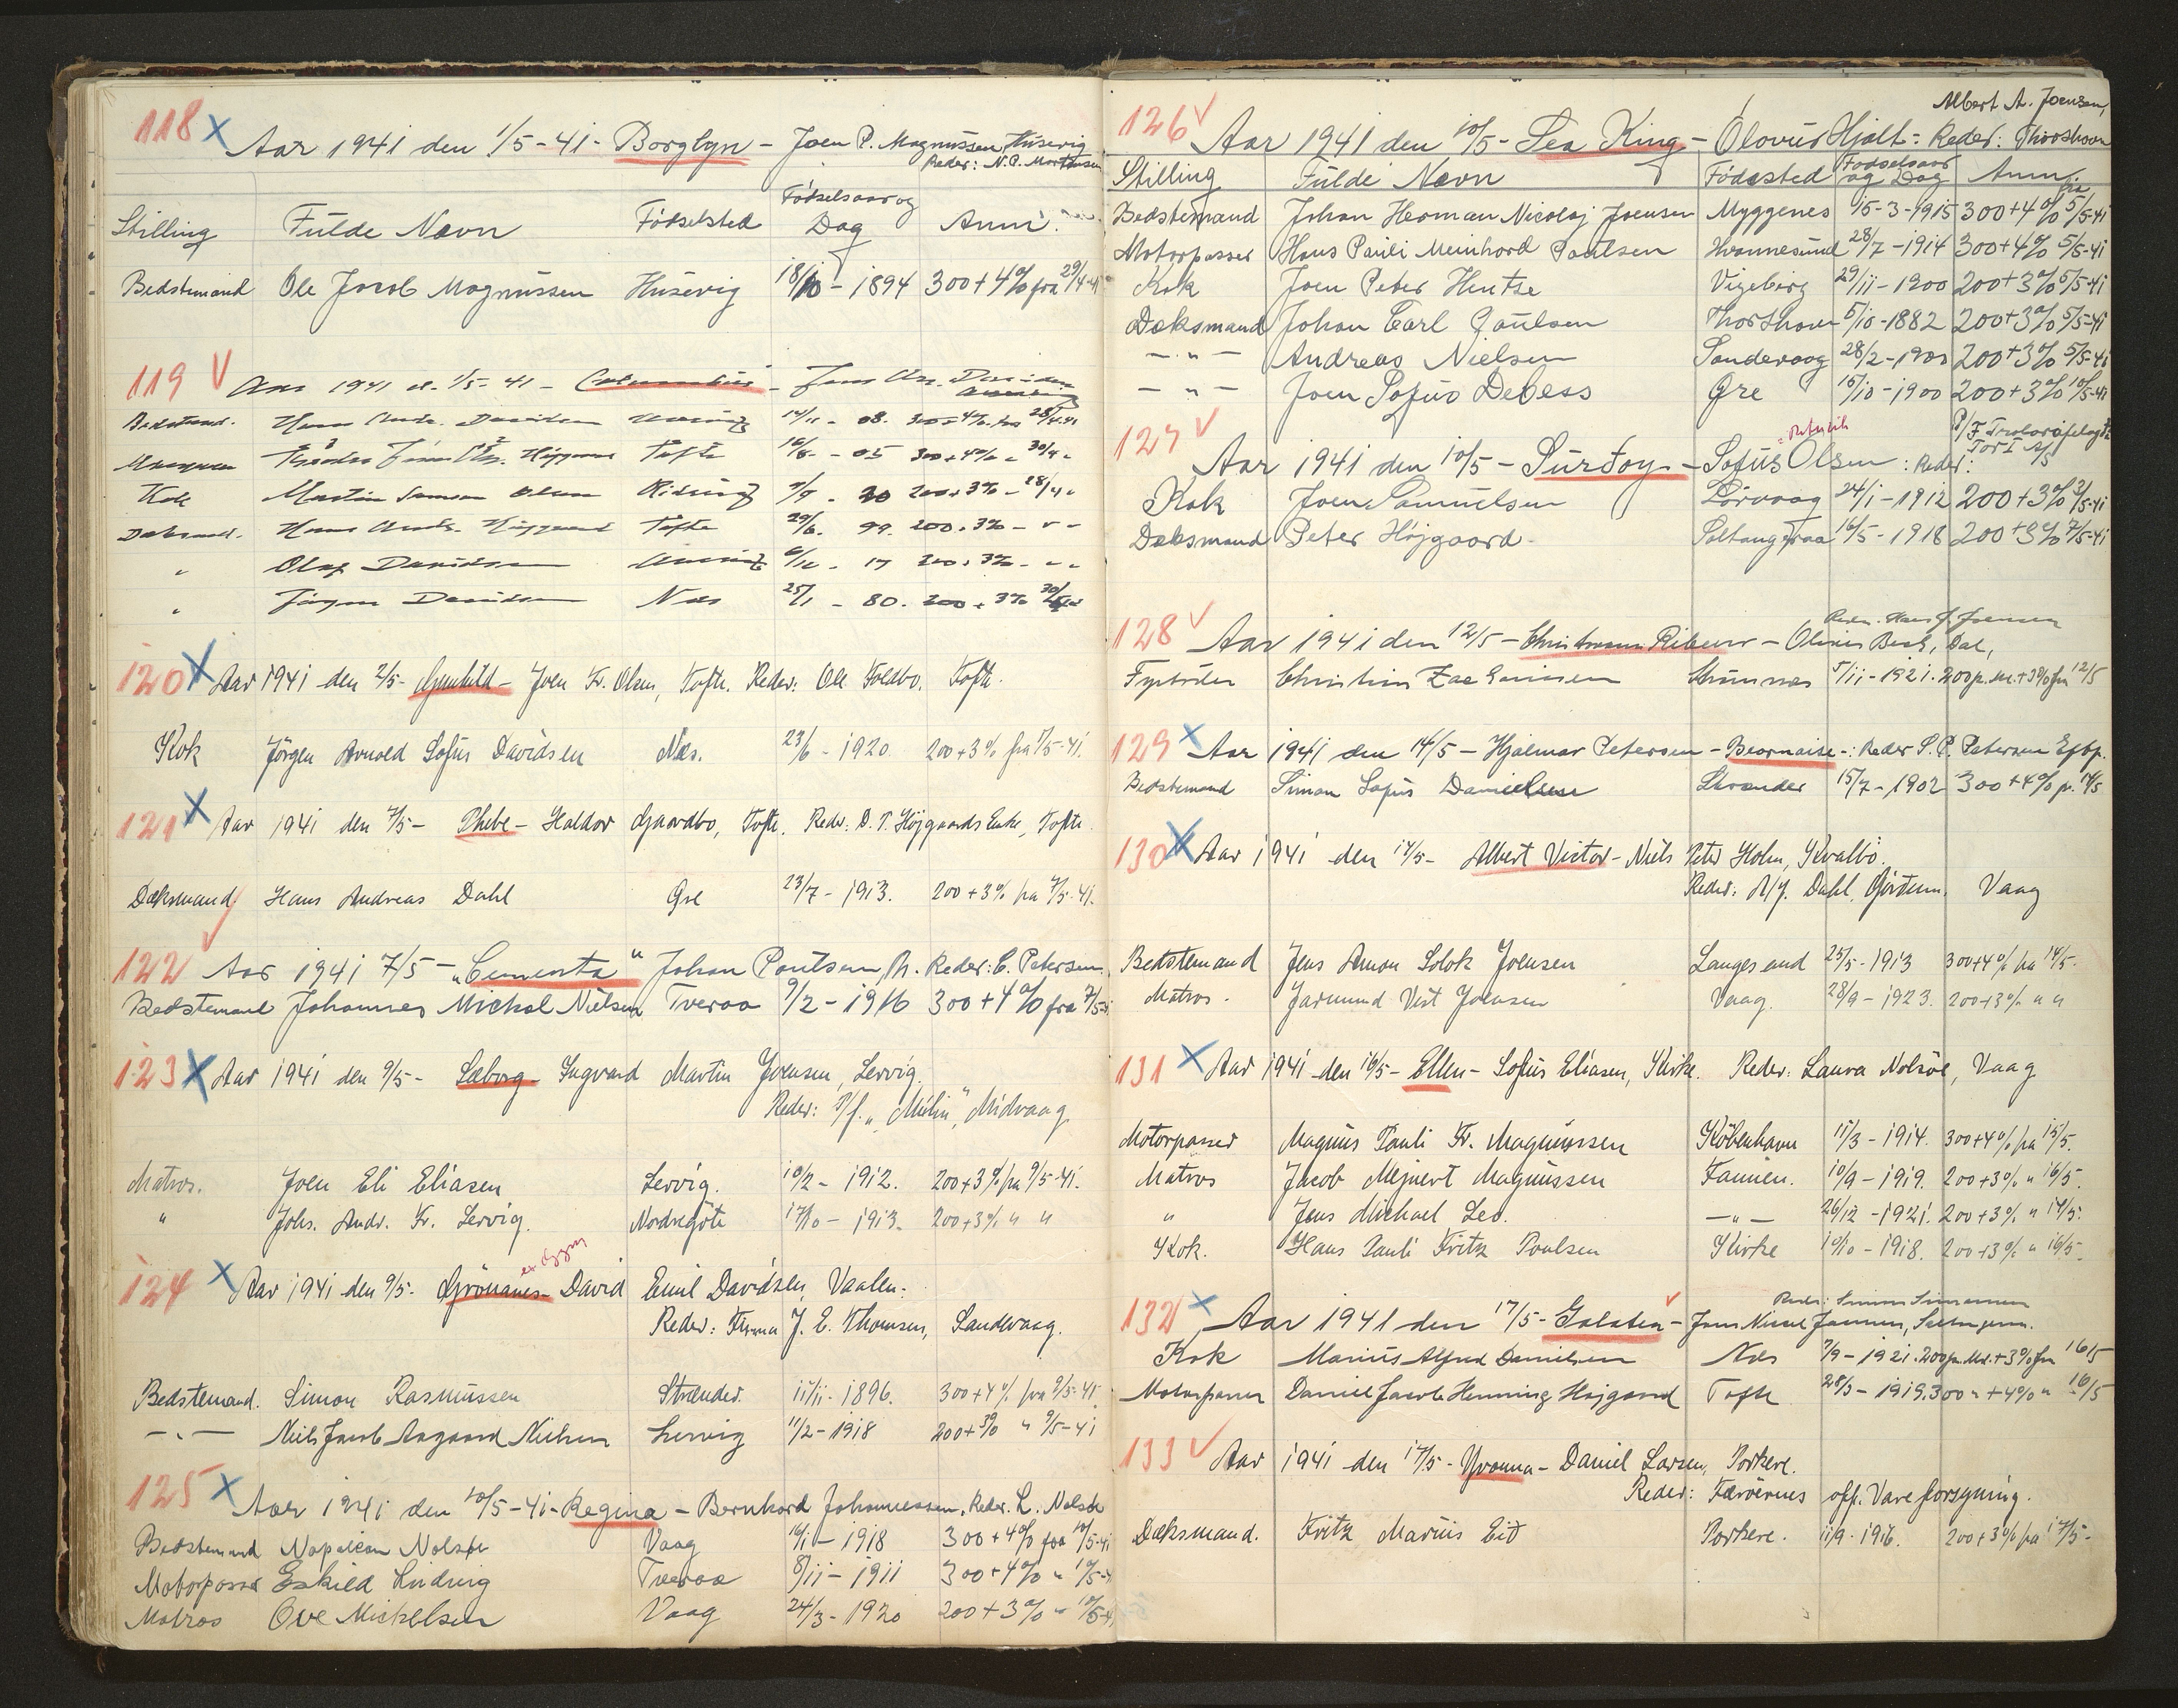 118 x Aar 1941 den 1/5-41- Borglyn - Joen P. Magnussen, Húsevig
Reder: N.P. Mortensen
Stilling Fulde Navn Fødselsted Fødselsaar og Dag Anm:
Bedstemand Ole Jacob Magnussen Húsevig 18/10 - 1894 300+4% fra 29/4-41
119 v Aar 1941 d. 1/5-41 - Columbus - Jens
Bedstmd. Hans Andr. Davidsen 08. 300+4% fra 28/4-41
Tofte 10/8 - 05 300+4% - 30/4 -
Kok Martin Samson Olsen 7/9 - 20 200+3% - 28/4 -
Dæksmd. Hans Andr. Højgaard Tofte 29/6. 99. 200+3% - " -
" Olaf Davidsen 17 200+3% - " -
" Jørgen Davidsen Næs 25/1 - 80. 200+3%
120 x Aar 1941 den 2/5- Gunhild - Joen Fr. Olsen, Tofte. Reder: Ole Foldbo, Tofte.
Kok Jørgen Arnold Sofus Davidsen Næs. 23/6 - 1920 200+3% fra 2/5-41.
121 x Aar 1941 den 7/5- Phebe - Haldor Gaardbo, Tofte. Reder: D.P. Højgaards Enke, Tofte.
Dæksmand Hans Andreas Dahl Øre 23/7 - 1913. 200+3% fra 7/5-41.
122 v Aar 1941 7/5 - "Cementa" Johan Poulsen, Reder: C. Petersen
Bedstemand Johannes Michal Nielsen Tveraa 9/2 - 1916 300+4% fra 7/5-41
123 x Aar 1941 den 9/5- Søborg - Ingvard Martin Joensen, Lervig.
Reder: P/f. "Múlin", Midvaag
Matros. Joen Eli Eliasen Lervig. 10/2 - 1912. 200+3% fra 9/5-41.
" Johs. Andr. Fr. Lervig. Nordregøte 17/10 - 1913. 200+3% " "
124 x Aar 1941 den 9/5- Grönanes - David Emil Davidsen, Vaalen.
Reder: Firma J. E. Thomsen, Sandevaag.
Bedstemand. Simon Rasmussen Strænder. 11/11- 1896. 300+4% fra 9/5-41.
- " - Niels Jacob Aagaard Nielsen Lervig 11/2 - 1918 200+3% " 9/5-41
125 x Aar 1941 den 10/5-41- Regina - Bernhard Johannessen. Reder. L. Nolsøe
Bedstemand Napoleon Nolsøe Vaag 16/1 - 1918 300+4% fra 10/5-41
Motorpasser Eskild Lúdvig Tveraa 8/11 - 1911 300+4% " 10/5-41
Matros Ove Mickelsen Vaag 24/3 - 1920 200+3% " 10/5-41
Albert A. Joensen,
126 v Aar 1941 den 10/5 - Sea King - Ólovur Hjalt - Reder: Thorshavn
Stilling Fulde Navn Fødested Fødselsaar og Dag Anm.
Bedstemand Johan Herman Nicolaj Joensen Myggenes 15-3-1915 300+4% fra 5/5-41
Motorpasser Hans Pauli Meinhard Poulsen Hvannesund 28/7 - 1914 300+4% 5/5-41
Kok Joen Peter Hentze Vigeberg 29/11 - 1900 200+3% 5/5-41
Dæksmand Johan Carl Poulsen Thorshavn 5/10 - 1882 200+3% 5/5-41
- " - Andreas Nielsen Sandevaag 28/2 - 1900 200+3% 5/5-41
- " - Joen Sofus Debess Øre 15/10 - 1900 200+3% 10/5-41
127 v Aar 1941 den 10/5 - Surdoy - Sofus Olsen : Reder: P/F Trolarafelagið Tor I A/S
Kok Joen Samuelsen Sørvaag 24/1 - 1912 200+3% 2/5-41
Dæksmand Peter Højgaard. Saltangeraa 16/5 - 1918 200+3% 7/5-41
Reder. Hans J. Joensen
128 v Aar 1941 den 12/5 - Christmann Ribeur - Olivur Beck, Dal,
Fyrbøder Christian Zacharisen 5/11 - 1921. 200 p.M.+3% fra 12/5
129 x Aar 1941 den 14/5 - Hjalmar Petersen - Bearnaise - : Reder S.P. Petersen Eftf.
Bedstemand Simon Sofus Danielsen Strænder 15/7 - 1902 300+4% fr. 14/5
130 x Aar 1941 den 14/5- Albert Victor - Niels Peter Holm, Kvalbø.
Reder: A/f. Dahl, Gjørdum. Vaag
Bedstemand Jens Amon Solok Joensen Langesand 25/5 - 1913 300+4% fra 14/5.
Matros. Jarmund Vest Joensen Vaag. 28/9 - 1923. 200+3% " "
131 x Aar 1941 den 16/5- Ellen - Sofus Eliasen, Kirke. Reder: Laura Nolsøe, Vaag
Motorpasser Magnus Pauli Fr. Magnussen København 11/3 - 1914. 300+4% fra 15/5.
Matros Jacob Mejnert Magnussen Famien. 10/9 - 1919. 200+3% " 16/5.
" Jens Michael Leo. - " - 26/12 - 1921. 200+3% " 14/5.
Kok. Hans Pauli Fritz Poulsen Kirke 10/10 - 1918. 200+3% " 16/5-
Reder: Simun Simonsen
132 x Aar 1941 den 17/5- Galatea - Jens Niclas Joensen, Saltangeraa.
Kok Marius Alfred Danielsen Næs 7/9 - 1921. 200 p. Md.+3% fra 16/5
Motorpasser Daniel Jacob Henning Højgaard Tofte 28/3 - 1919. 300 " +4% " 16/5
133 v Aar 1941 den 17/5- Yvonna - Daniel Larsen, Porkere.
Reder: Færøernes off. Vareforsyning.
Dæksmand. Fritz Marius Eið Porkere. 11/9 - 1916. 200+3% fra 17/5-